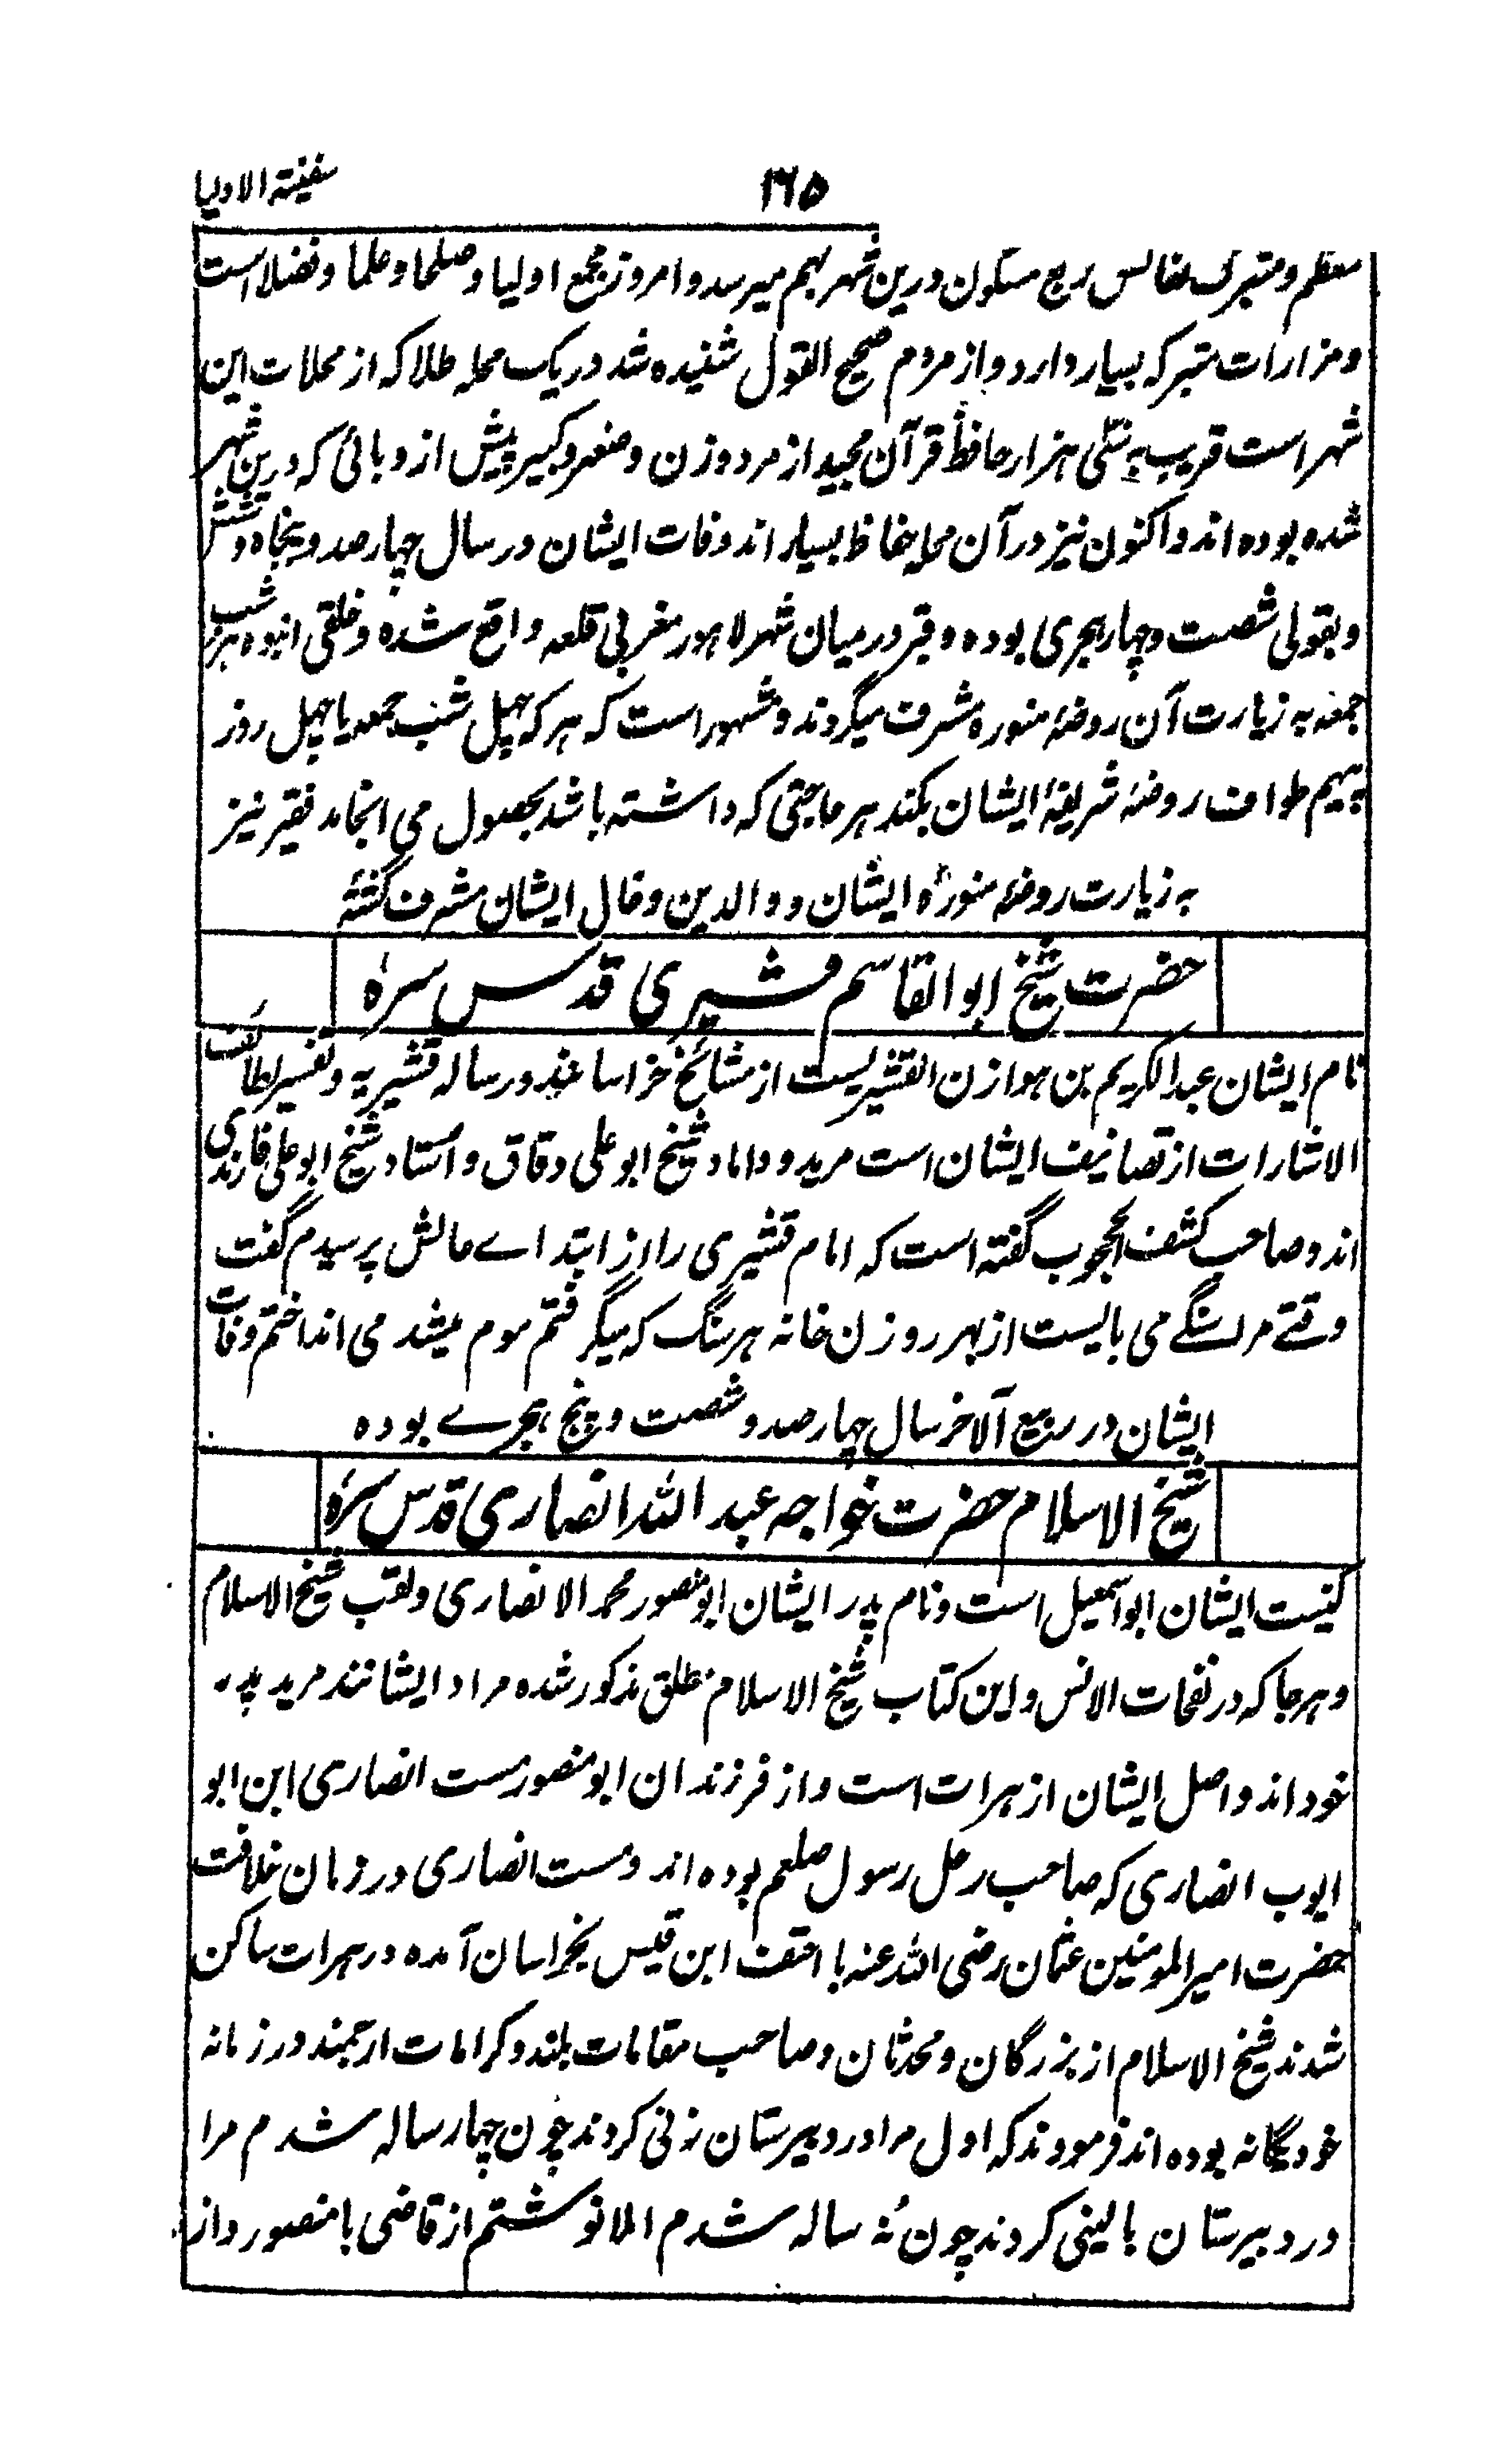 سفینۃ الاولیا
۱۶۵
معظم و متبرک نفائس ربع مسکون درین شهر بهم میرسد و امروز مجمع اولیا و صلحا و علما و فضلا است
و مزارات متبرکه بسیار دارد و از مردم صحیح القول شنیده شد در یک محله طلا که از محلات این
شهر است قریب به سی هزار حافظ قرآن مجید از مرد و زن و صغیر و کبیر پیش از وبائی که درین شهر
شده بوده اند و اکنون نیز در آن محله حفاظ بسیار اند وفات ایشان در سال چهار صد و پنجاه و شش
و بقولی شصت و چهار هجری بوده و قبر در میان شهر لاهور مغربی قلعه واقع شده و خلقی انبوه هر شب
جمعه به زیارت آن روضهٔ منوره مشرف میگردند و مشهور است که هر که چهل شب جمعه یا چهل روز
پیهم طواف روضهٔ شریفهٔ ایشان بکند هر حاجتی که داشته باشد بحصول می انجامد فقیر نیز
به زیارت روضهٔ منورهٔ ایشان و والدین و خال ایشان مشرف گشته
حضرت شیخ ابو القاسم قشیری قدس سرہ
نام ایشان عبدالکریم بن هوازن القشیریست از مشائخ خراسانند و رساله قشیریه و تفسیر لطائف
الاشارات از تصانیف ایشان است مرید و داماد شیخ ابو علی دقاق و استاد شیخ ابو علی فارمدی
اند و صاحب کشف المحجوب گفته است که امام قشیری را از ابتداے حالش پرسیدم گفت
وقتے مرا سنگے می بایست از بهر روزن خانه هر سنگ که میگرفتم موم میشد می انداختم وفات
ایشان در ربیع الآخر سال چهار صد و شصت و پنج هجرے بوده
شیخ الاسلام حضرت خواجه عبد الله انصاری قدس سرہ
کنیت ایشان ابو اسمعیل است و نام پدر ایشان ابو منصور محمد الانصاری و لقب شیخ الاسلام
و هر جا که در نفحات الانس و این کتاب شیخ الاسلام مطلق مذکور شده مراد ایشانند مرید پدر
خود اند و اصل ایشان از هرات است و از فرزندان ابو منصور مست انصاری ابن ابو
ایوب انصاری که صاحب رحل رسول صلعم بوده اند و مست انصاری در زمان خلافت
حضرت امیر المومنین عثمان رضی الله عنه با احنف ابن قیس بخراسان آمده در هرات ساکن
شدند شیخ الاسلام از بزرگان و محدثان و صاحب مقامات بلند و کرامات ارجمند در زمانه
خود یگانه بوده اند فرمودند که اول مرا در دبیرستان زنی کردند چون چهار ساله شدم مرا
در دبیرستان بالینی کردند چون نُه ساله شدم املا نوشتم از قاضی با منصور و از